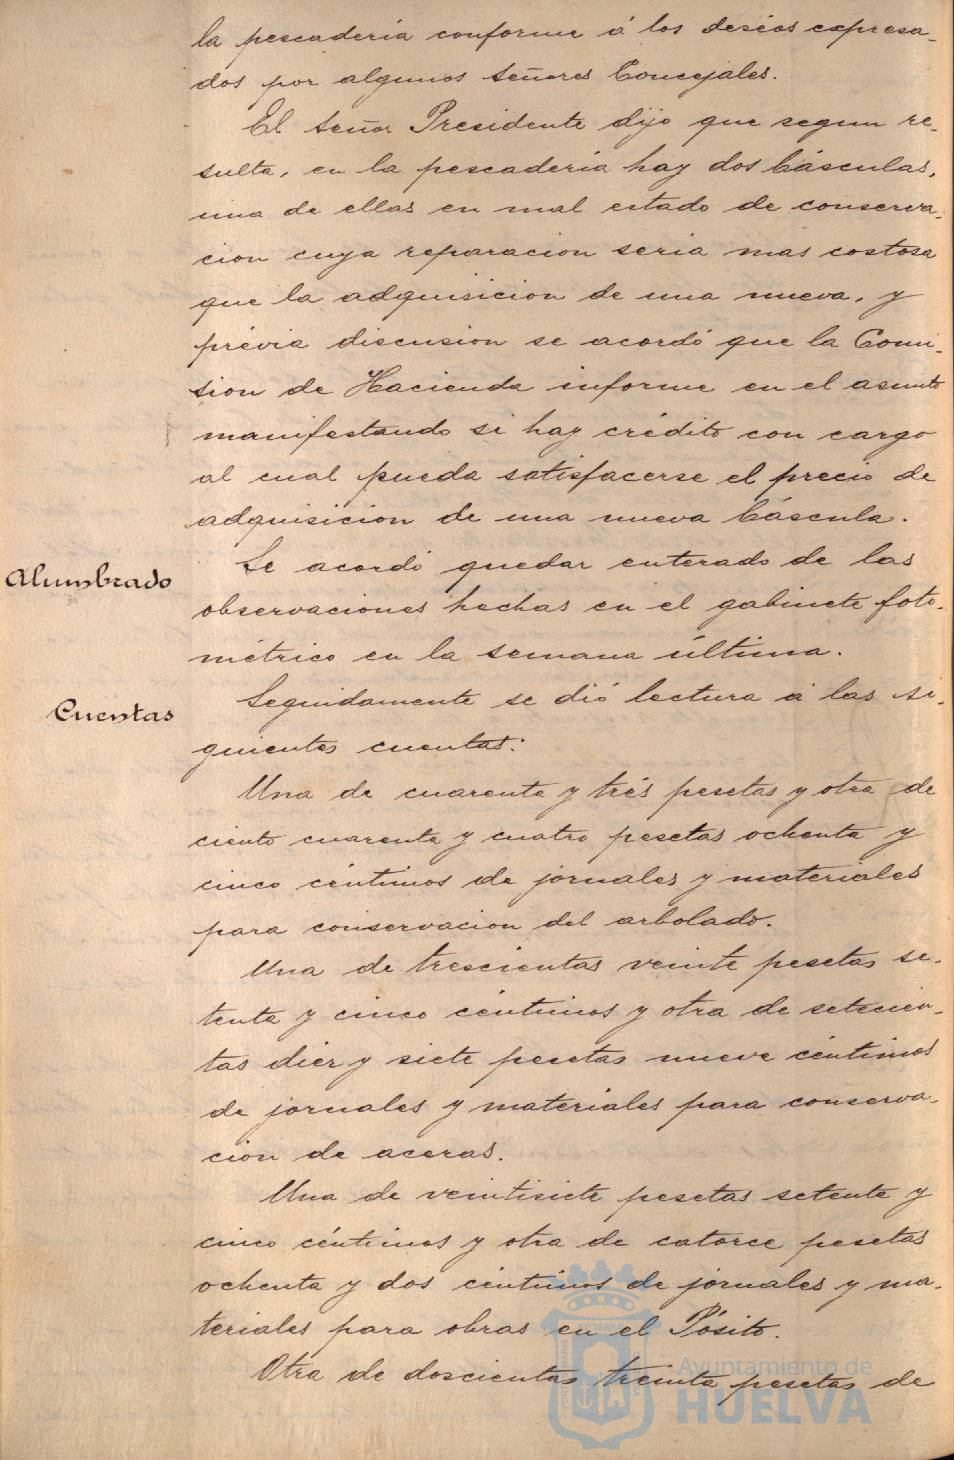 la pescadería conforme á los deséos expresa-
dos por algunos Señores Concejales.
El Señor Presidente dijo que segun re-
sulta, en la pescaderia hay dos básculas,
una de ellas en mal estado de conserva-
cion cuya reparacion seria mas costosa
que la adquisicion de una nueva, y
prévia discusion se acordó que la Comi-
sion de Hacienda informe en el asunto
manifestando si hay crédito con cargo
al cual pueda satisfacerse el precio de
adquisicion de una nueva báscula.
Alumbrado
Se acordó quedar enterado de las
observaciones hechas en el gabinete foto-
métrico en la semana última.
Cuentas
Seguidamente se dió lectura á las si-
guientes cuentas:
Una de cuarenta y trés pesetas y otra de
ciento cuarenta y cuatro pesetas ochenta y
cinco céntimos de jornales y materiales
para conservacion del arbolado.
Una de trescientas veinte pesetas se-
tenta y cinco céntimos y otra de setecien-
tas diez y siete pesetas nueve céntimos
de jornales y materiales para conserva-
cion de aceras.
Una de veintisiete pesetas setenta y
cinco céntimos y otra de catorce pesetas
ochenta y dos céntimos de jornales y ma-
teriales para obras en el Pósito.
Otra de doscientas treinta pesetas de
Ayuntamiento de
HUELVA